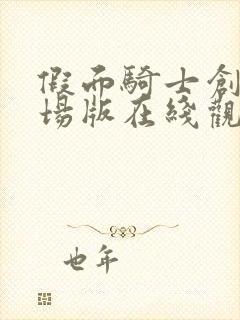 假而騎士創
場版在綫觀
也年